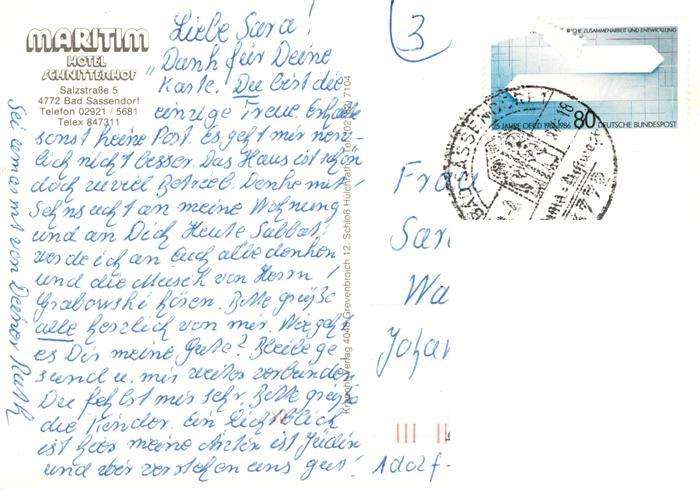 MARITIM
HOTEL
SCHNITTERHOF
Salzstraße 5
4772 Bad Sassendorf
Telefon 02921 / 5681
Telex 847311
Liebe Sara!
Dank für Deine
Karte. Du bist die
einzige Treue. Erhalte
sonst keine Post. Es geht mir nerv-
lich nicht besser. Das Haus ist schön
doch zuviel Betrieb. Denke mit
Sehnsucht an meine Wohnung
und an Dich. Heute Sabbat.
werde ich an Euch alle denken
und die Musik von Herrn
Grabowski hören. Bitte grüße
alle herzlich von mir. Wie geht
es Dir meine Gute? Bleibe ge
sund u. mir weiter verbunden
Du fehlst mir sehr. Bitte grüße
die Kinder. Ein Lichtblick
ist hier meine Ärztin ist Jüdin
und wir verstehen uns gut!
Sei umarmt von Deiner Ruth
Verlag 4048 Grevenbroich 12, Schloß Hülchrath
3
ZUSAMMENARBEIT UND ENTWICKLUNG
25 JAHRE OECD 1961-1986
80
DEUTSCHE BUNDESPOST
BAD SASSENDORF 1
4772
Frau
Sar
Wa
Johan
Adolf-